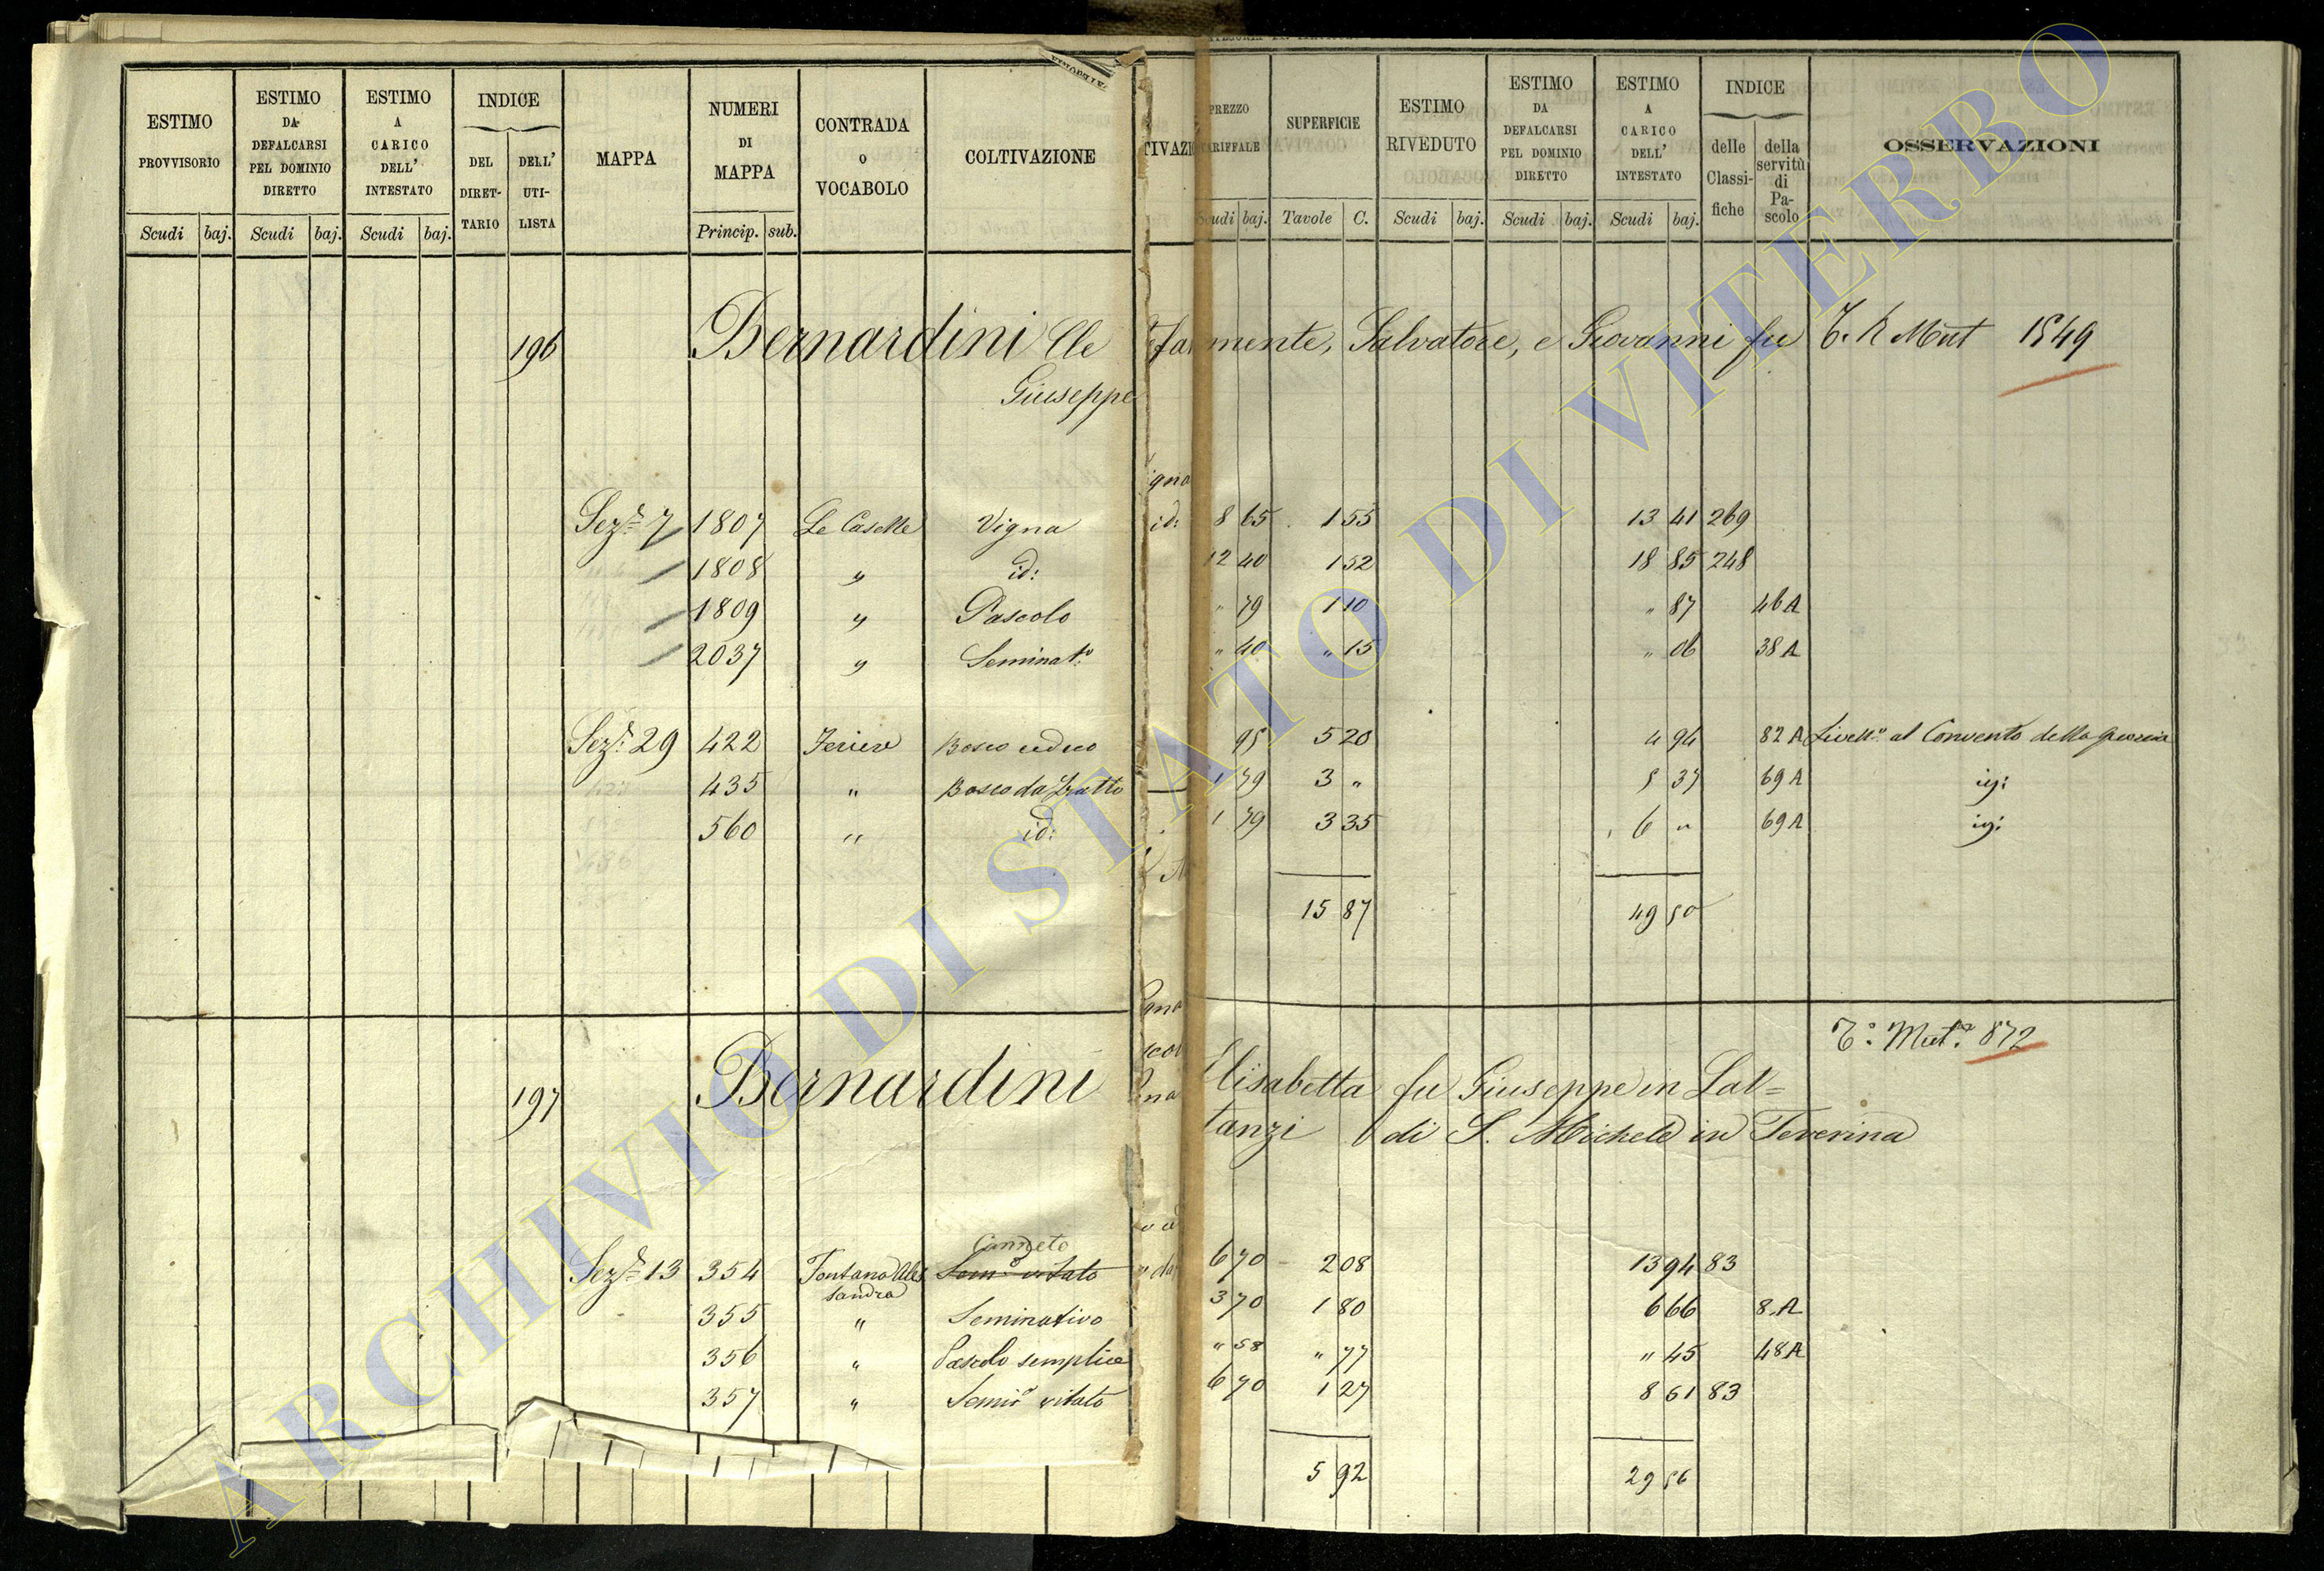 ESTIMO PROVVISORIO Scudi baj.
ESTIMO DA DEFALCARSI PEL DOMINIO DIRETTO Scudi baj.
ESTIMO A CARICO DELL' INTESTATO Scudi baj.
INDICE DEL DIRET-TARIO DELL' UTI-LISTA
MAPPA
NUMERI DI MAPPA Princip. sub.
CONTRADA O VOCABOLO
COLTIVAZIONE
TIVAZI
PREZZO TARIFFALE Scudi baj.
SUPERFICIE Tavole C.
ESTIMO RIVEDUTO Scudi baj.
ESTIMO DA DEFALCARSI PEL DOMINIO DIRETTO Scudi baj.
ESTIMO A CARICO DELL' INTESTATO Scudi baj.
INDICE delle Classi-fiche della servitù di Pa-scolo
OSSERVAZIONI
196 Bernardini Cle mente, Salvatore, e Giovanni fu Mut 1549
Giuseppe
Sez.e 7 1807 Le Caselle Vigna 8 65 1 55 13 41 269
1808 " id: 12 40 1 52 18 85 248
1809 " Pascolo " 79 1 10 " 87 46 A
2037 " Seminat.o " 40 " 15 " 06 38 A
Sez.e 29 422 Bosco ceduo 95 5 20 4 94 82 A Livell.o al Convento della
435 " Bosco da frutto 1 79 3 " 5 37 69 A
560 " id: 1 79 3 35 6 " 69 A
15 87 49 50
Mut.e 872
197 Bernardini Elisabetta fu Giuseppe in Lat=
tanzi di S. Michele in Teverina
Canneto
Sez.e 13 354 Fontana Ales Sem.o vitato 6 70 2 08 13 94 83
sandra
355 " Seminativo 3 70 1 80 6 66 8 A
356 " Pascolo semplice " 58 " 77 " 45 48 A
357 " Semin.o vitato 6 70 1 27 8 51 83
5 92 29 56
ARCHIVIO DI STATO DI VITERBO